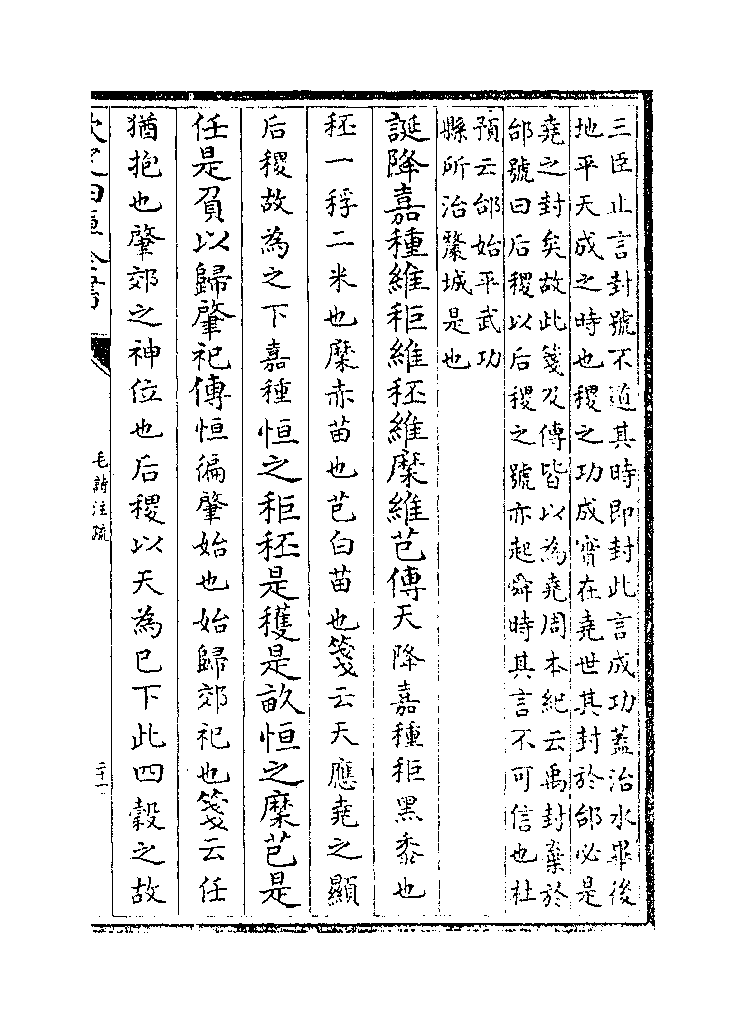 三臣止言封號不道其時即封此言成功蓋治水畢後
地平天成之時也稷之功成實在堯世其封於邰必是
堯之封矣故此箋及傳皆以為堯周本紀云禹封棄於
邰號曰后稷以后稷之號亦起舜時其言不可信也杜
預云邰始平武功
縣所治釐城是也
誕降嘉種維秬維秠維穈維芑傳天降嘉種秬黑黍也
秠一稃二米也穈赤苗也芑白苗也箋云天應堯之顯
后稷故為之下嘉種恒之秬秠是穫是畝恒之穈芑是
任是負以歸肇祀傳恒徧肇始也始歸郊祀也箋云任
猶抱也肇郊之神位也后稷以天為已下此四穀之故
欽定四庫全書
毛詩注疏
二十一